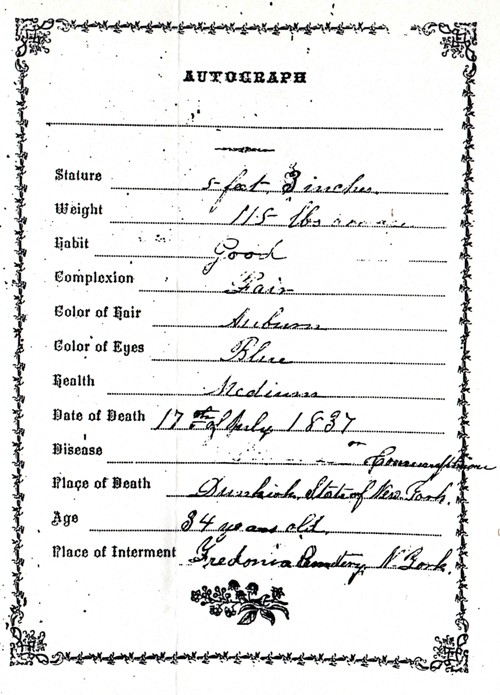 AUTOGRAPH
Stature 5 feet 3 inches.
Weight 115 lbs
Habit Good
Complexion Fair
Color of Hair Auburn
Color of Eyes Blue
Health Medium
Date of Death 17th of July 1837
Disease Consumption
Place of Death Dunkirk, State of New York.
Age 34 years old.
Place of Interment Fredonia Cemetery N York